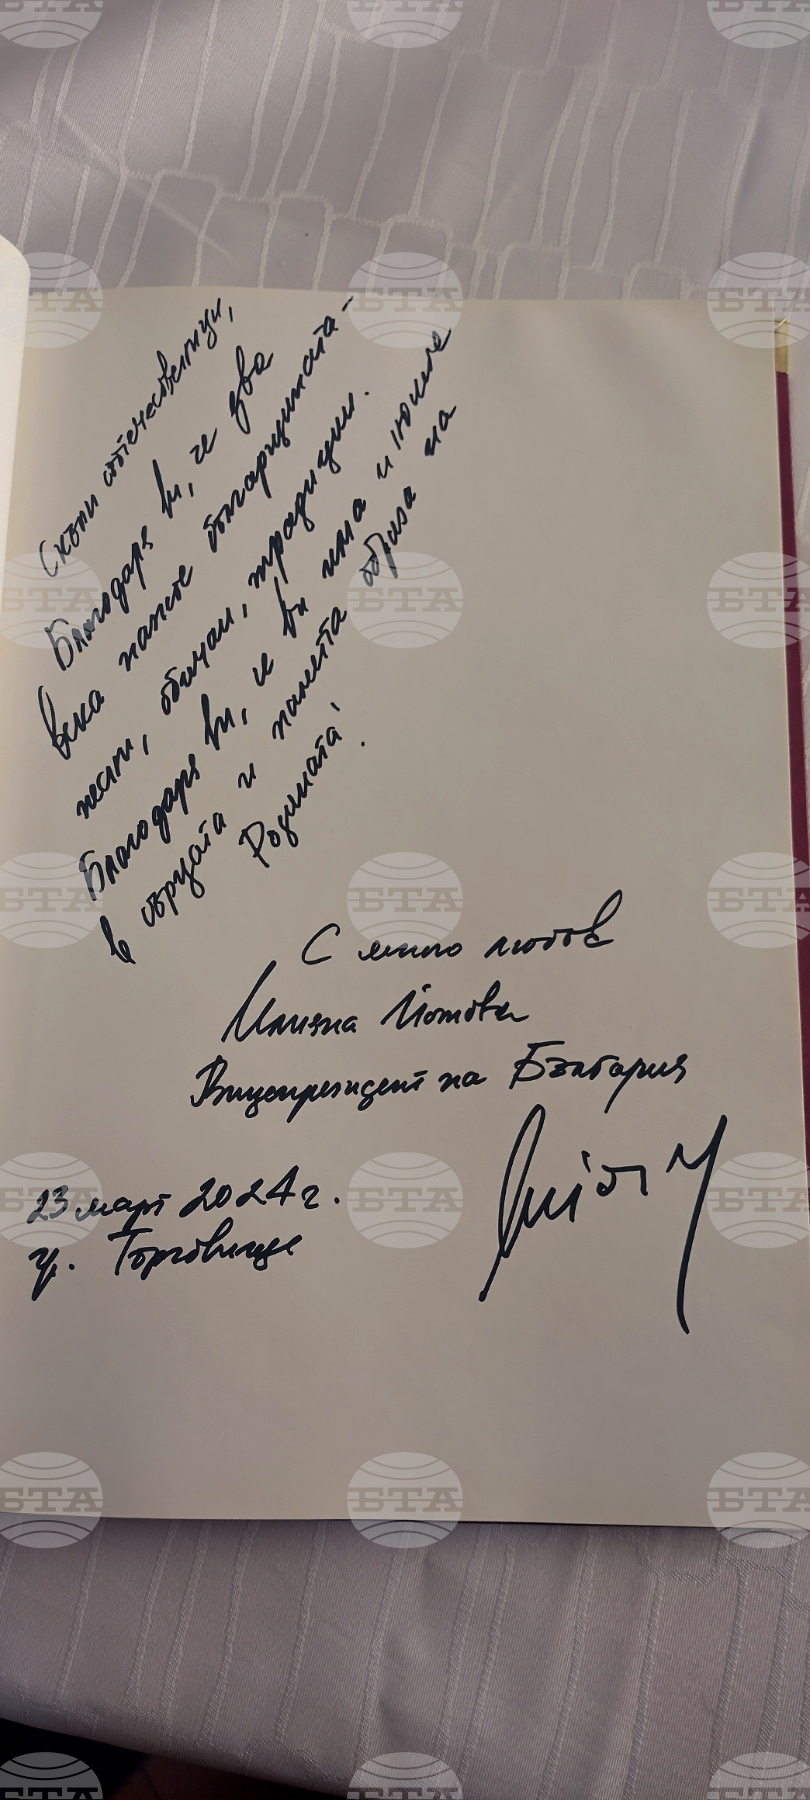 Скъпи сътечественици,
Благодаря Ви, че два
века пазите българщината -
песни, обичаи, традиции.
Благодаря Ви, че Ви има и носите
в сърцата и паметта образа на
Родината!
С много любов
Илияна Йотова
Вицепрезидент на България
23 март 2024 г.
гр. Търговище
БТА